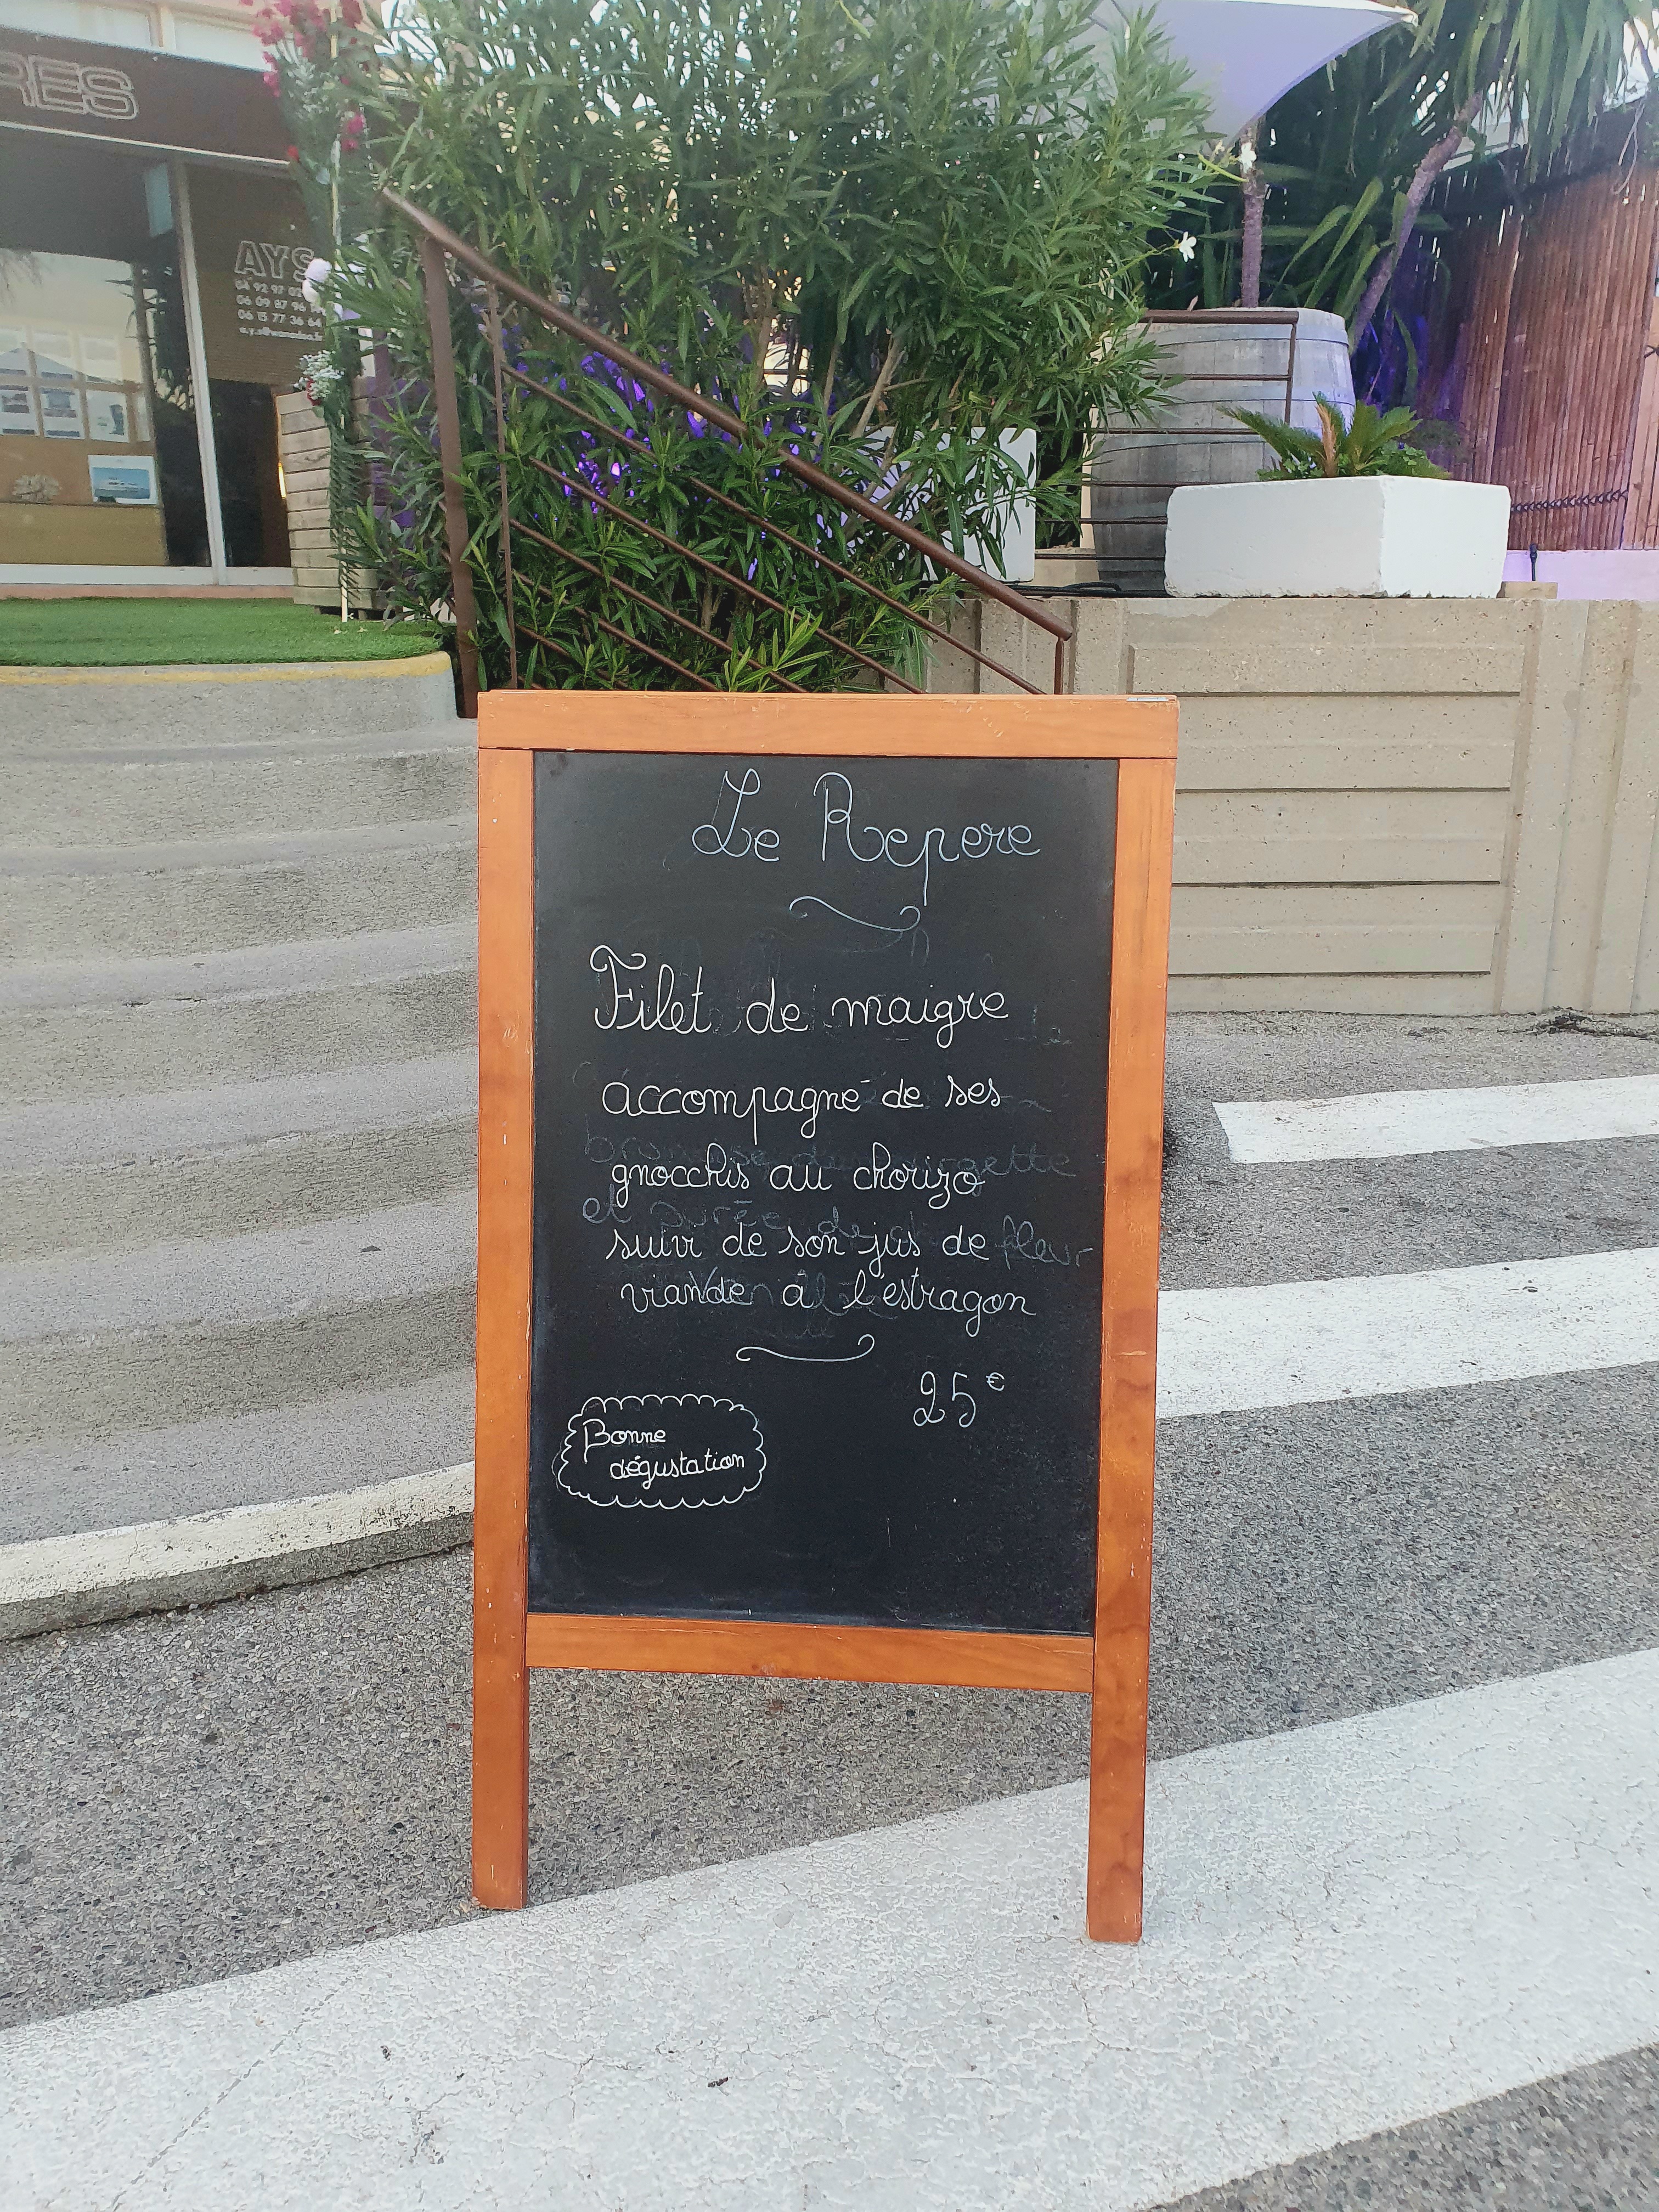 RES
AYS
04 92 97
06 09 87 96
06 15 77 36 64
Le Repere
Filet de maigre
accompagné de ses
gnocchis au chorizo
suivi de son jus de
viande à l'estragon
25€
Bonne
dégustation